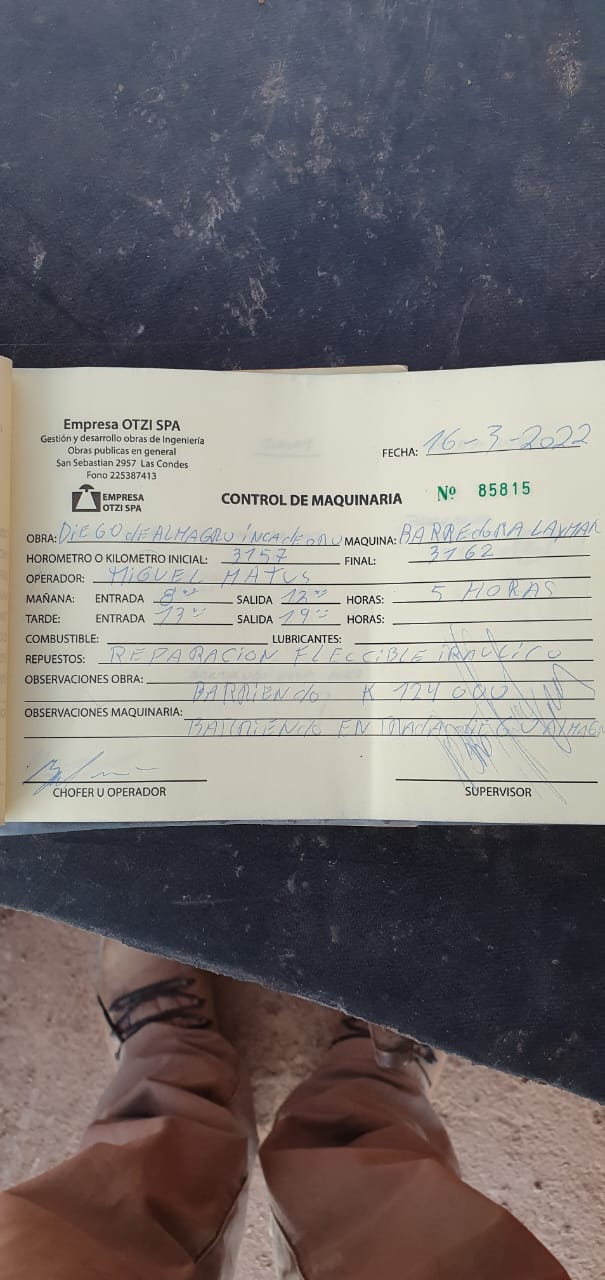 Empresa OTZI SPA
Gestión y desarrollo obras de Ingeniería
Obras publicas en general
San Sebastian 2957 Las Condes
Fono 225387413
EMPRESA
OTZI SPA
FECHA: 16-3-2022
CONTROL DE MAQUINARIA
Nº 85815
OBRA: DIEGO de ALMAGRO INCA de ORO MAQUINA: BARREdORA LAYMAN
HOROMETRO O KILOMETRO INICIAL: 3157 FINAL: 3162
OPERADOR: MIGUEL MATUS
MAÑANA: ENTRADA 8 00 SALIDA 12 00 HORAS: 5 HORAS
TARDE: ENTRADA 13 00 SALIDA 19 00 HORAS:
COMBUSTIBLE: LUBRICANTES:
REPUESTOS: REPARACION FLECCIBLE IRAULICO
OBSERVACIONES OBRA:
BARRIENdo K 124 000
OBSERVACIONES MAQUINARIA:
BARRIENdo EN
CHOFER U OPERADOR
SUPERVISOR